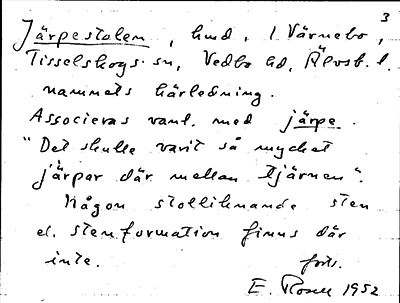 3
Järpestolen, hmd, l. Värnebo,
Tisselskogs sn, Vedbo hd, Älvsb. l.
namnets härledning.
Associeras vanl. med järpe.
"Det skulle varit så mycket
järpar där mellan tjärnen".
Någon stolliknande sten
el. stenformation finns där
inte. forts.
E. Rosell 1952